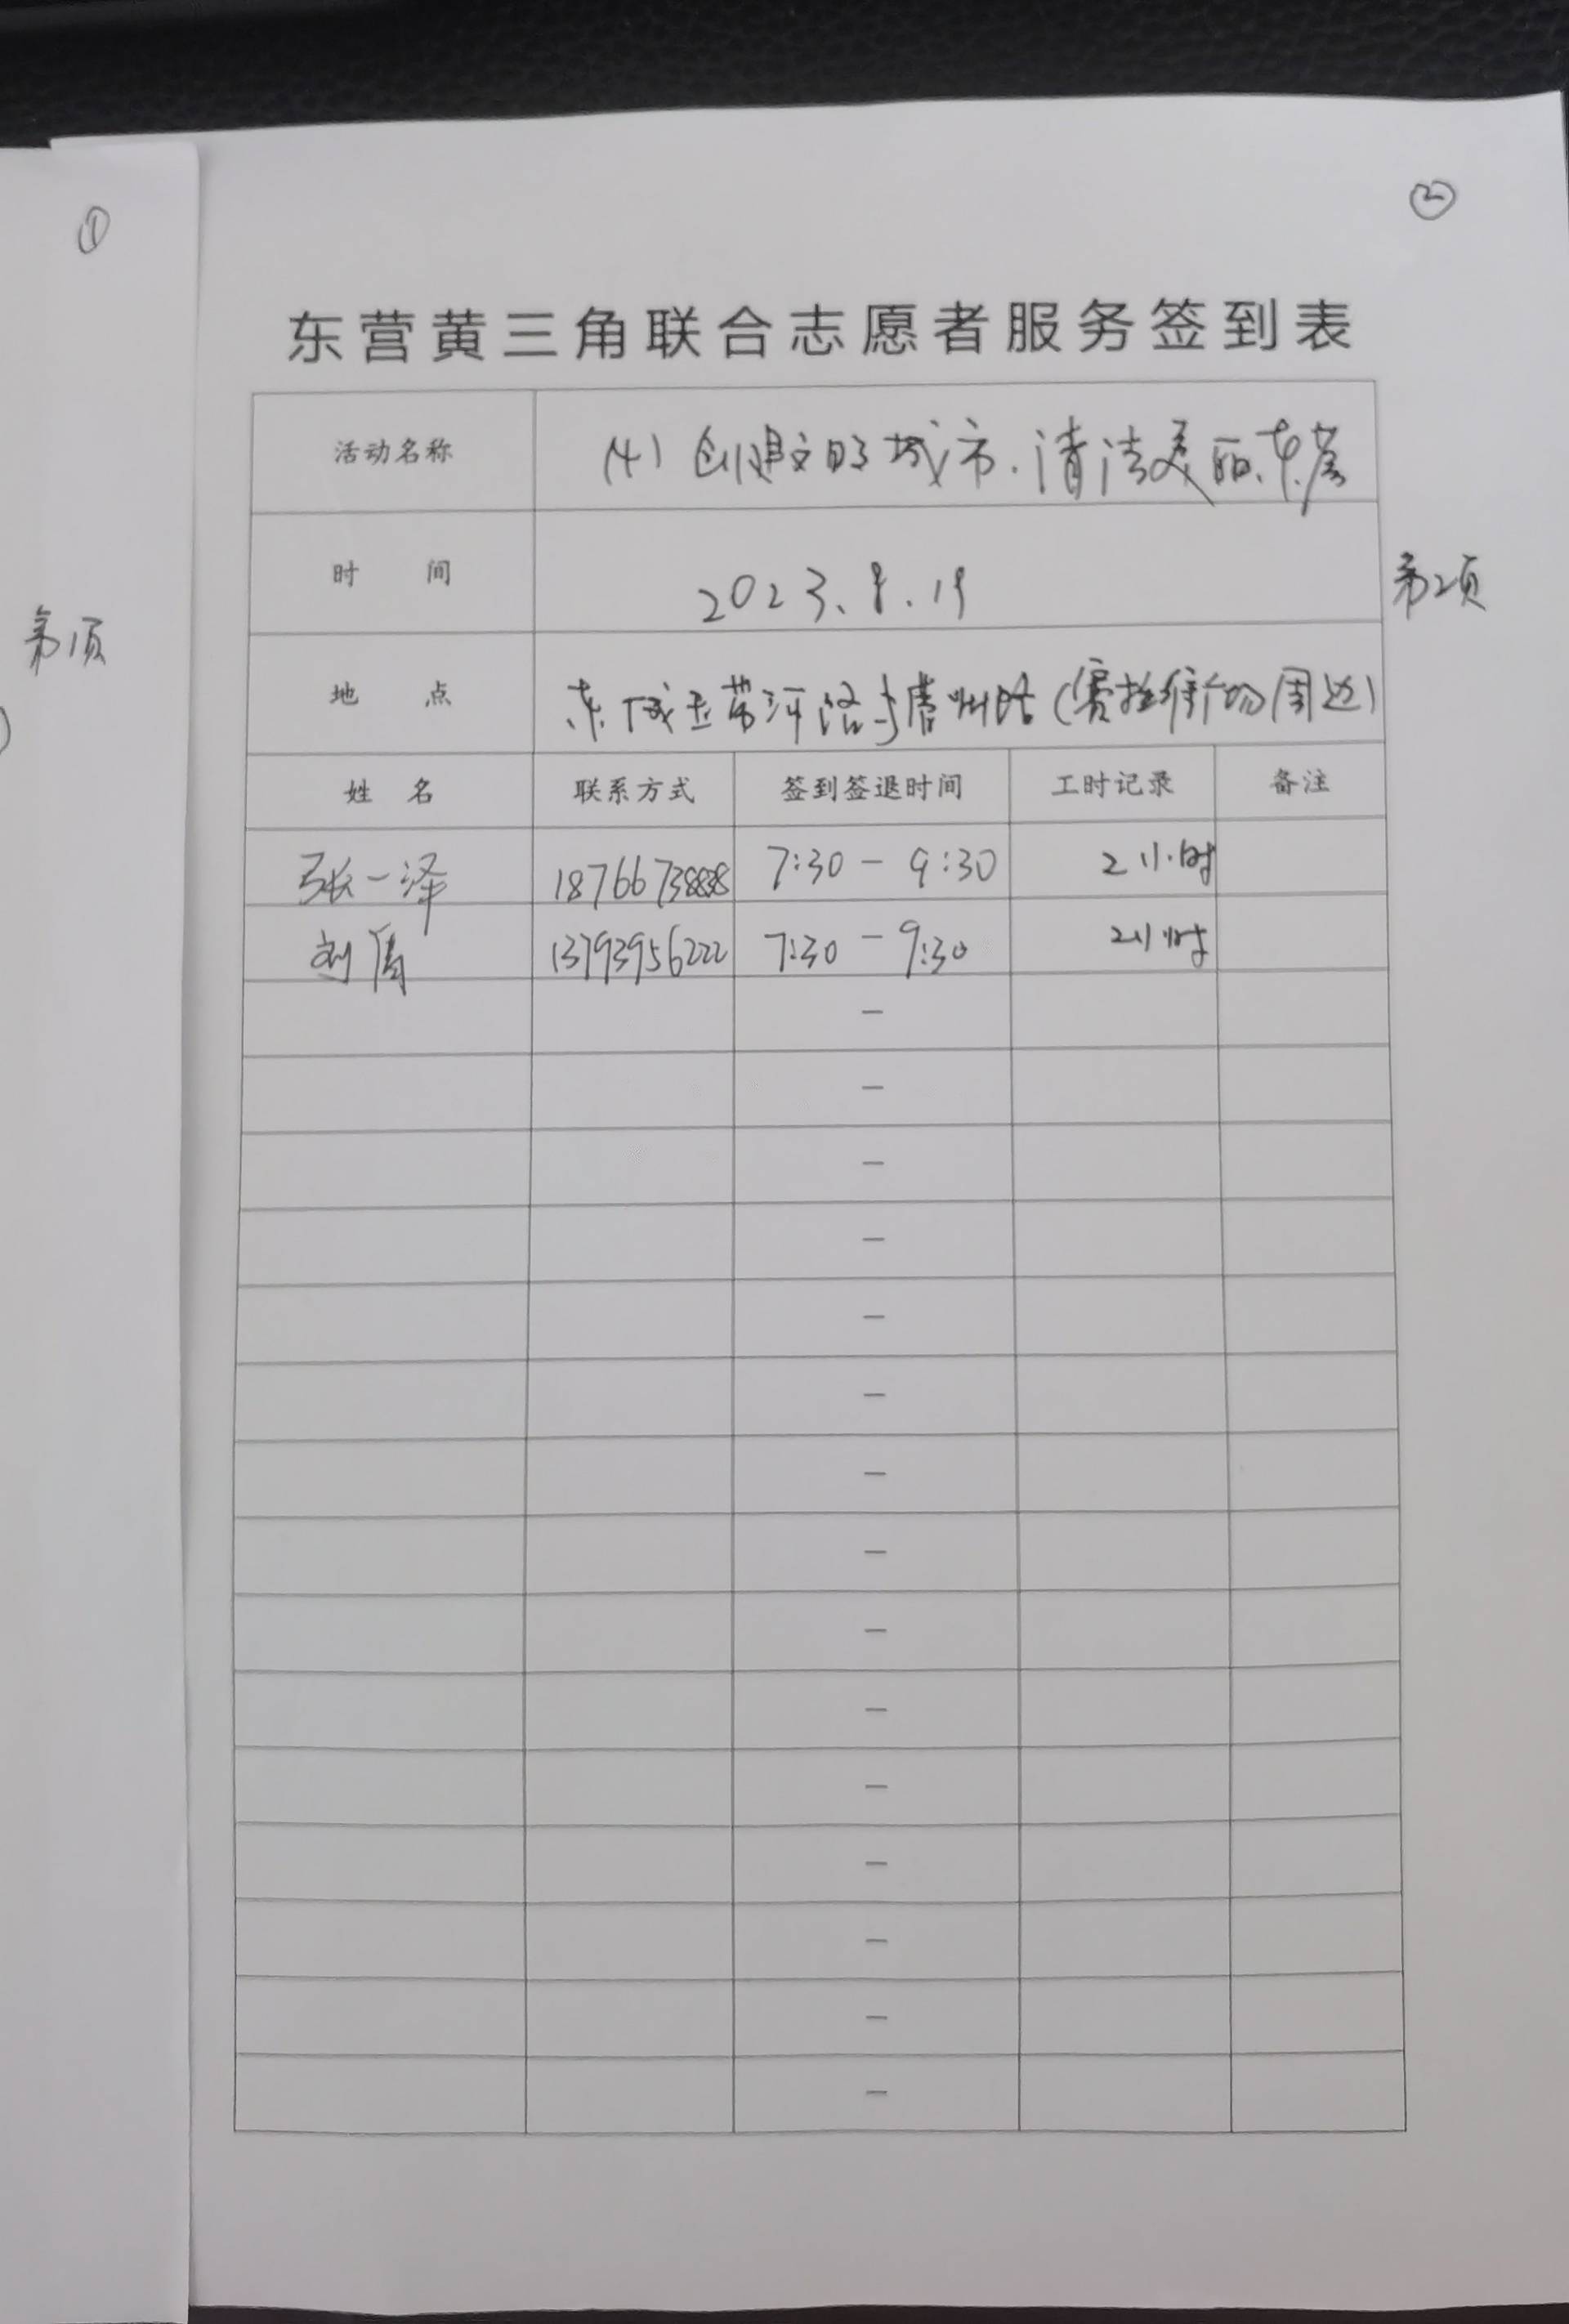 ①
②
东营黄三角联合志愿者服务签到表
活动名称 (4) 创建文明城市.清洁美丽东营
时 间 2023.8.19
第1页
第2页
地 点 东城玉带河路与唐州路(赛拉维广场周边)
姓 名 联系方式 签到签退时间 工时记录 备注
张一泽 7:30-9:30 2小时
刘倩 13793956222 7:30-9:30 2小时
—
—
—
—
—
—
—
—
—
—
—
—
—
—
—